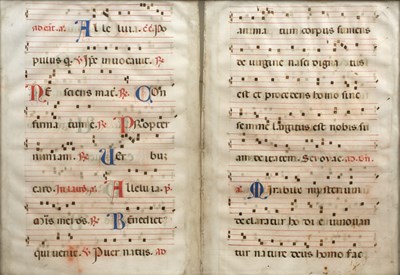 Alleluia.
pulus q. V. Ipe invocavit. R.
Nesciens mat. R. Con
R. Propter
nimiam. R. Verbu
caro. Alleluia.
R. Benedict
qui venit. V. Puer natus. ad
animatum corpus sumens
de virgine nasci dignatus
est et procedens homo sine
semine largitus est nobis su
am deitatem. Seuovae.
Mirabile mysterium
declaratur hodie innovan
tur nature deus homo fac